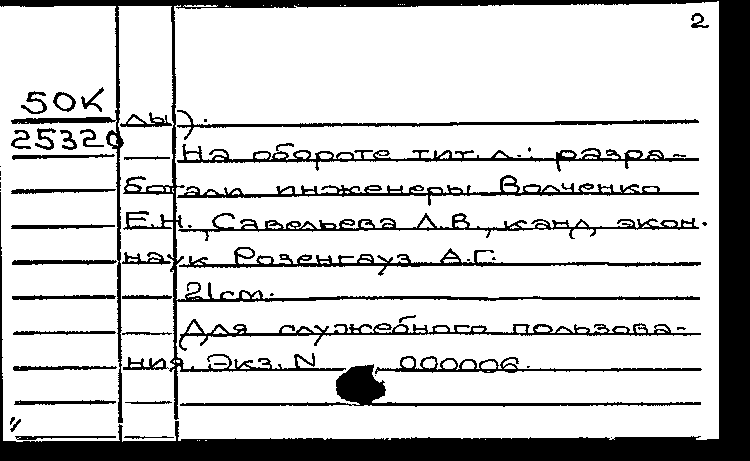 2
50К
25320
лы).
На обороте тит. л.: разра-
ботали инженеры Волченко
Е.Н., Савельева Л.В., канд. экон.
наук Розенгауз А.Г.
21см.
Для служебного пользова-
ния. Экз. N 000006.